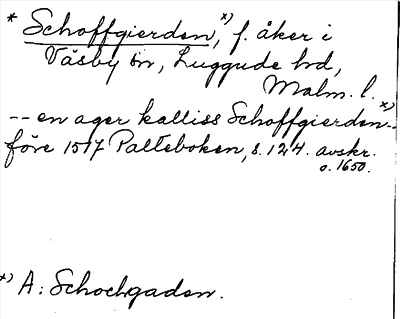 * Schoffgierden, x) f. åker i
Väsby sn, Luggude hd,
Malm. l.
-- en ager kalliss Schoffgierden-- x)
före 1517 Palteboken, s. 124. avskr.
o. 1650.
x) A: Schochgaden.